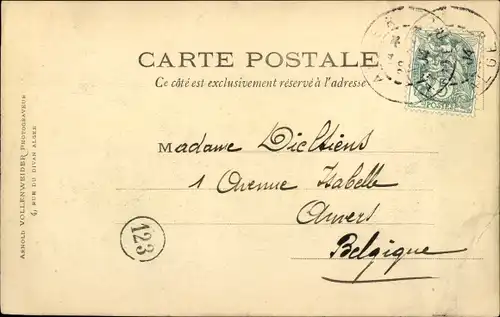 CARTE POSTALE
Ce côté est exclusivement réservé à l'adresse
Madame Dieltiens
1 Avenue Isabelle
Anvers
Belgique
123
ARNOLD VOLLENWEIDER PHOTOGRAVEUR
4, RUE DU DIVAN ALGER
POSTES